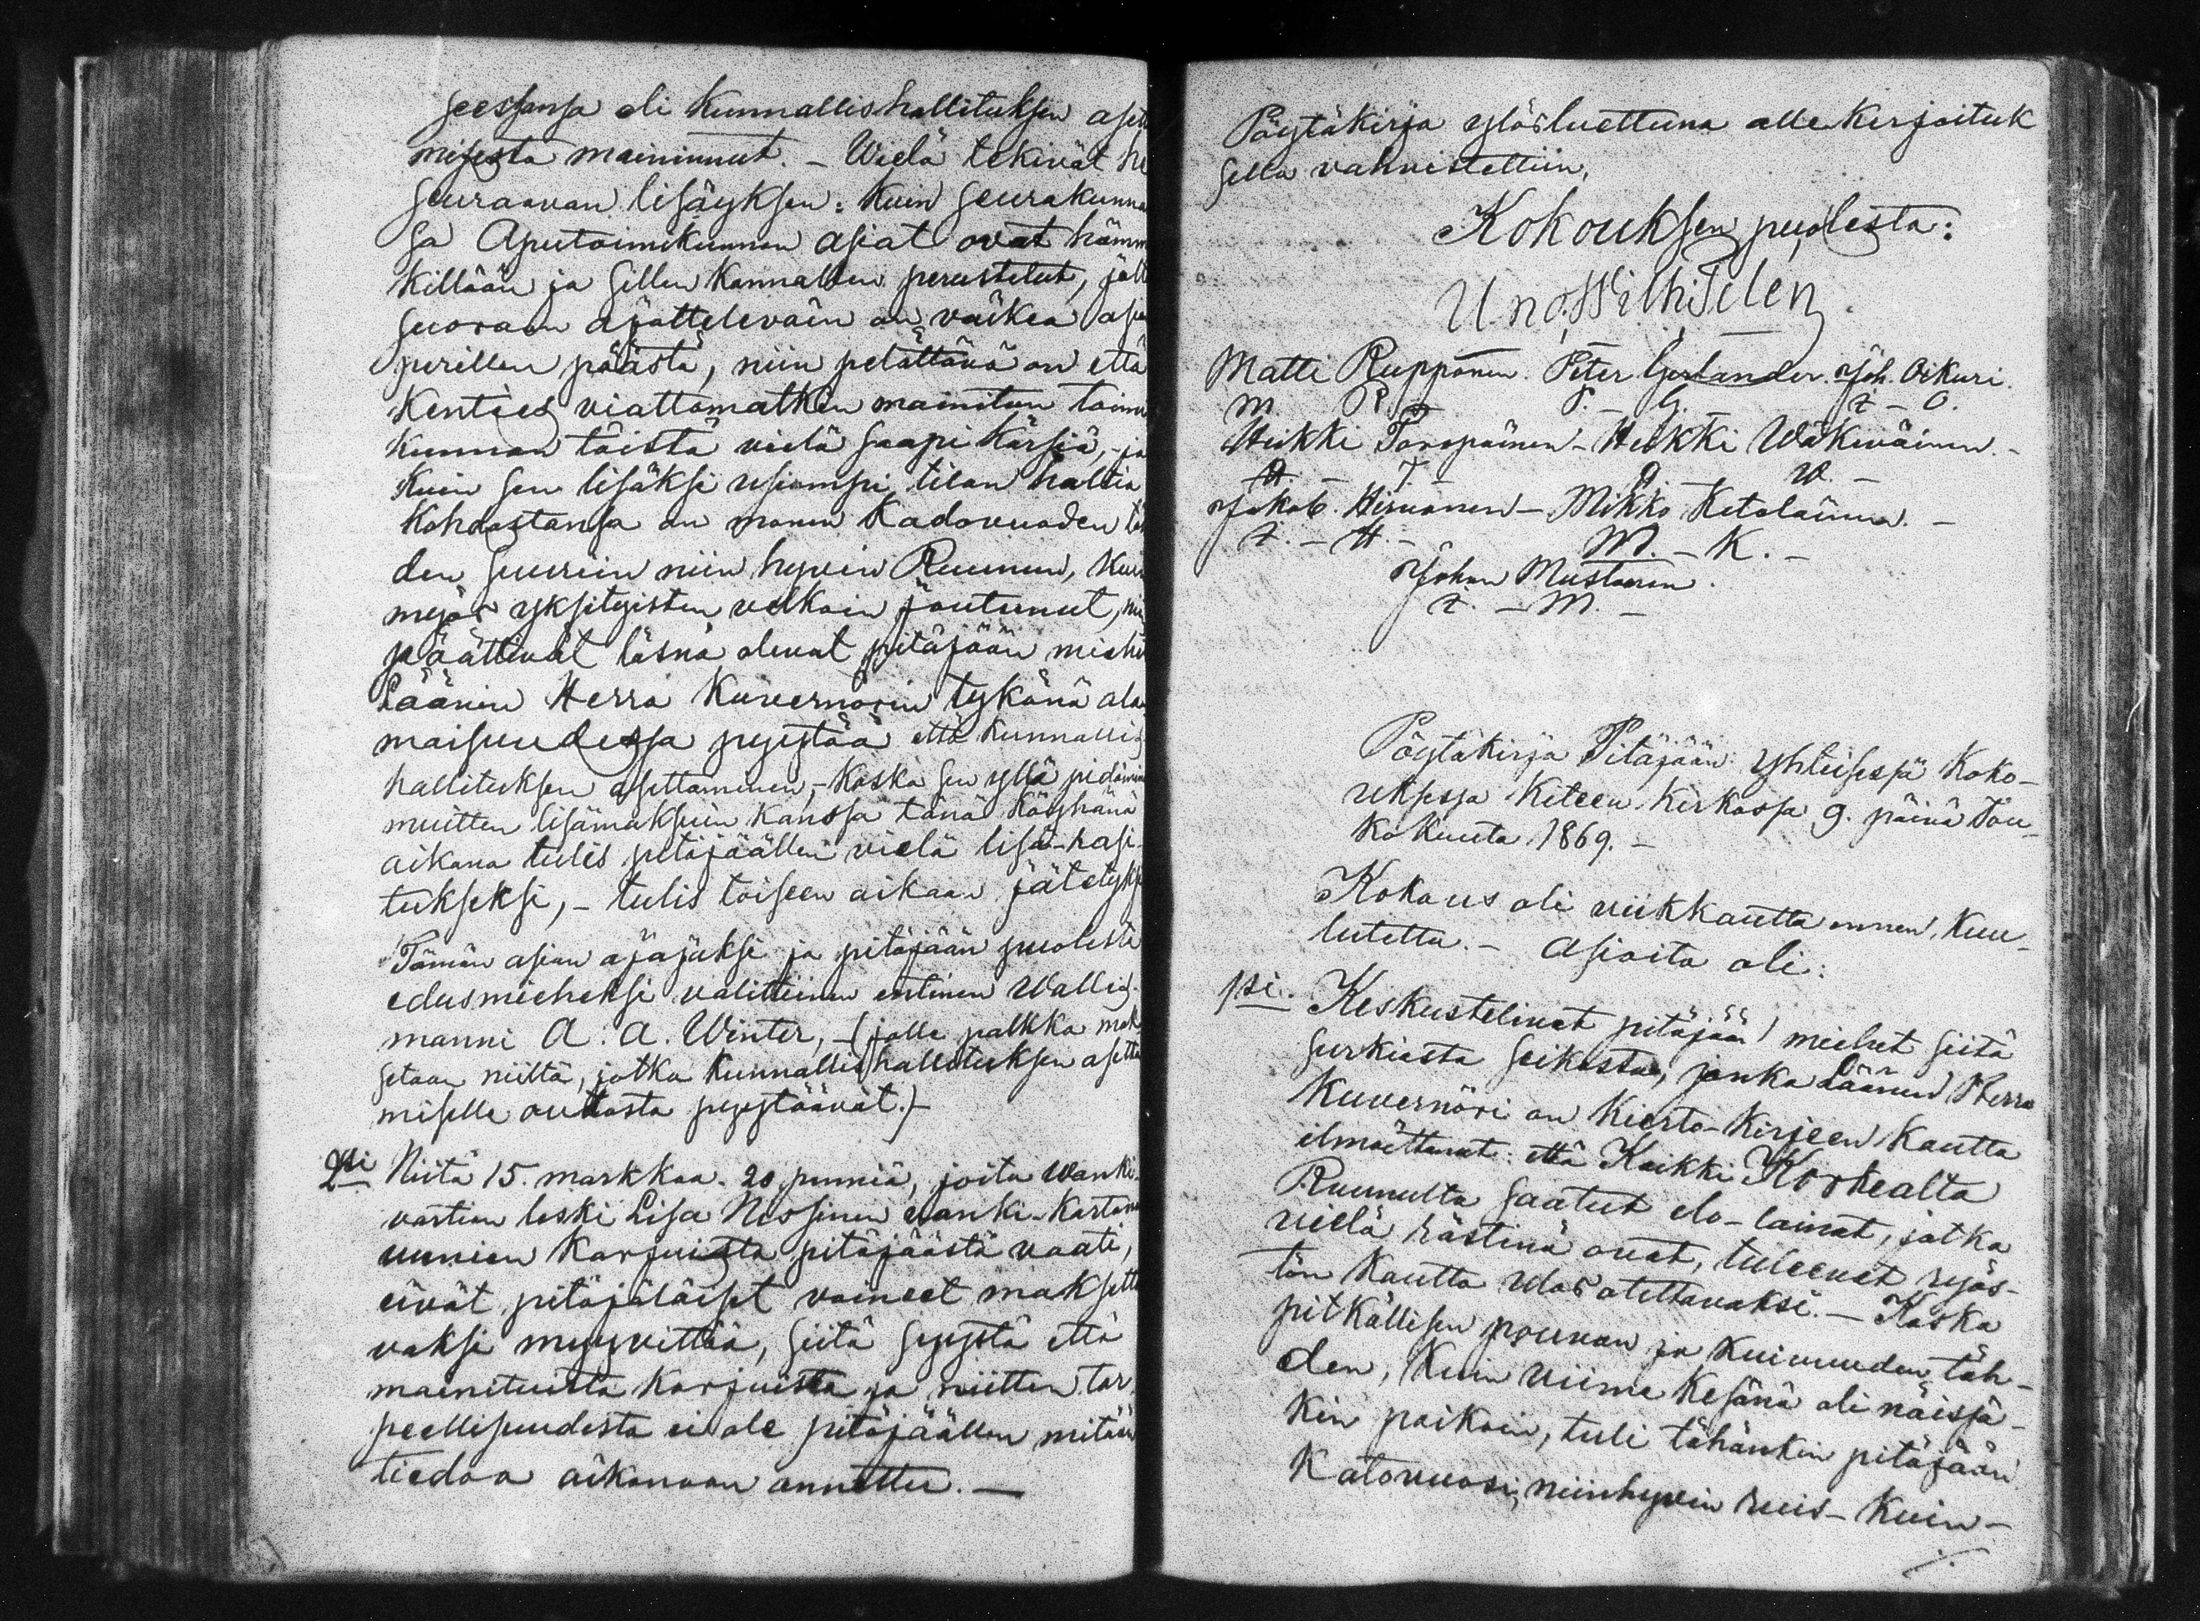 seessansa oli Kunnallishallituksen asett
misesta maininnut. – Wielä tekivät he
seuraavan lisäyksen: Kuin seurakunna
sa Aputoimikunnan asiat ovat hämm
killään ja sillen kannallen perustelut, jott
suoraan ajattelevain on vaikea asia
perillen päästä, niin pelättävä on että
Kenties viattomatkin mainitun toimi
kunnan töistä vielä saapi kärsiä, – ja
Kuin sen lisäksi usiampi tilan haltia
Kohdastansa on monen Kadovuoden täh
den suuriin niin hyvin Ruunun, Kuin
myös yksityisten velkoin joutunut, nii
päättivät läsnä olevat pitäjään miehe
Läänin Herra Kuvernörin tykönä ala
maisuudessa pyytää että Kunnallis
hallituksen asettaminen, – koska sen yllä pidämine
muitten lisämaksuin kanssa tänä köyhänä
aikana tulis pitäjäällen vielä lisä-rasi-
tukseksi, – tulis toiseen aikaan jätetyks
Tämän asian ajajaksi ja pitäjään puolesta
edusmieheksi valittiinen entinen Wallis-
manni A. A. Winter, – (jolle palkka mak
setaan niiltä, jotka Kunnallishallituksen asetta
miselle outtosta pyytäävät.) –
2si Niitä 15. markkaa. 20 penniä, joita wanki-
vartian leski Lisa Nissinen vanki-Kartano
uunien Karjuista pitäjäästä vaati,
eivät pitäjäläiset vaineet maksetta
vaksi myyvittää, siitä syystä että
mainituista Karjuista ja niitten tar
peellisuudesta ei ole pitäjäällen mitään
tiedoa aikanaan annettu. –
Pöytäkirja ylösluettuna allekirjoituk
sella vahvistettiin,
Kokouksen puolesta:
Uno Wilh: Telen
Matti Rupponen. Peter Gerlander. Joh. Oikuri.
M. R. P. – G. – J – O.
Heikki Toropainen – Heikki Wäkiväinen. –
H. – T. H. – W. –
Jakob. Hirvonen – Mikko Ketolainen. –
J. – H. – M. – K. –
Johan Mustonen.
J. – M. –
Pöytäkirja Pitäjään yhteisessä Koko-
uksessa Kiteen Kirkossa 9. päivä Tou-
kokuuta 1869. –
Kokous oli viikkautta ennen, Kuu-
lutettu. – Asioita oli:
1si. Keskustelivat pitäjään miehet siitä
surkiasta seikasta, jonka Läänin Herra
Kuvernöri on Kierto-Kirjeen Kautta
ilmoittanut: että Kaikki Korkealta
Ruunulta saatut elo-lainat, jotka
vielä rästinä ovat, tuleevat ryös-
tön Kautta ulos otettavaksi. – Koska
pitkällisen pouvan ja Kuivuuden täh-
den, Kuin viime Kesänä oli näissä-
kin paikoin, tuli tähänkin pitäjään
Katovuosi, niinhyvin ruis- Kuin –